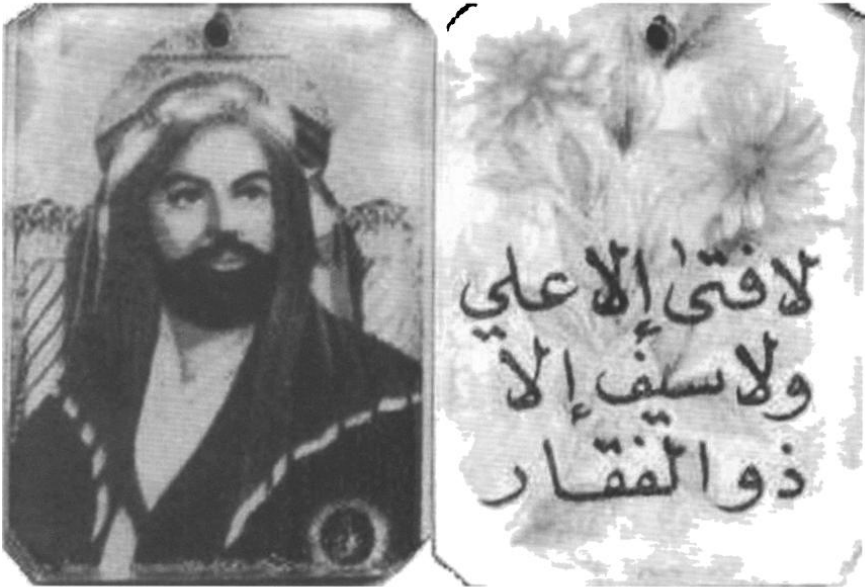 لا فتىٰ إلا علي
ولا سيف إلا
ذو الفقار